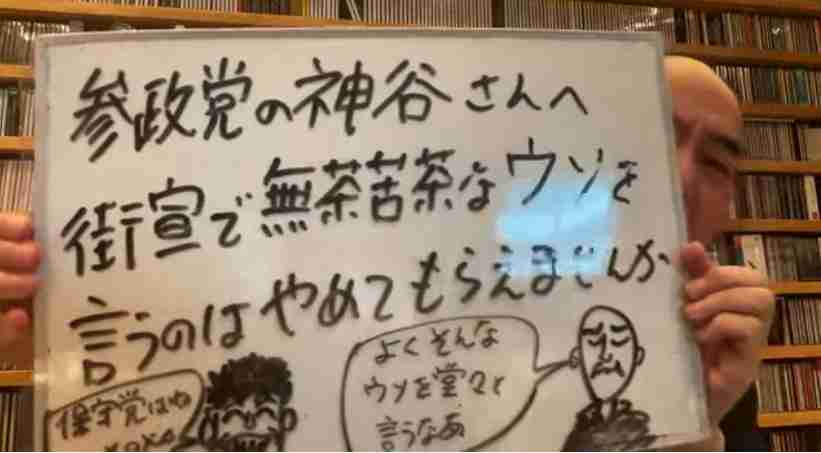 参政党の神谷さんへ
街宣で無茶苦茶なウソを
言うのはやめてもらえませんか
よくそんな
ウソを堂々と
言うなあ
保守党はね